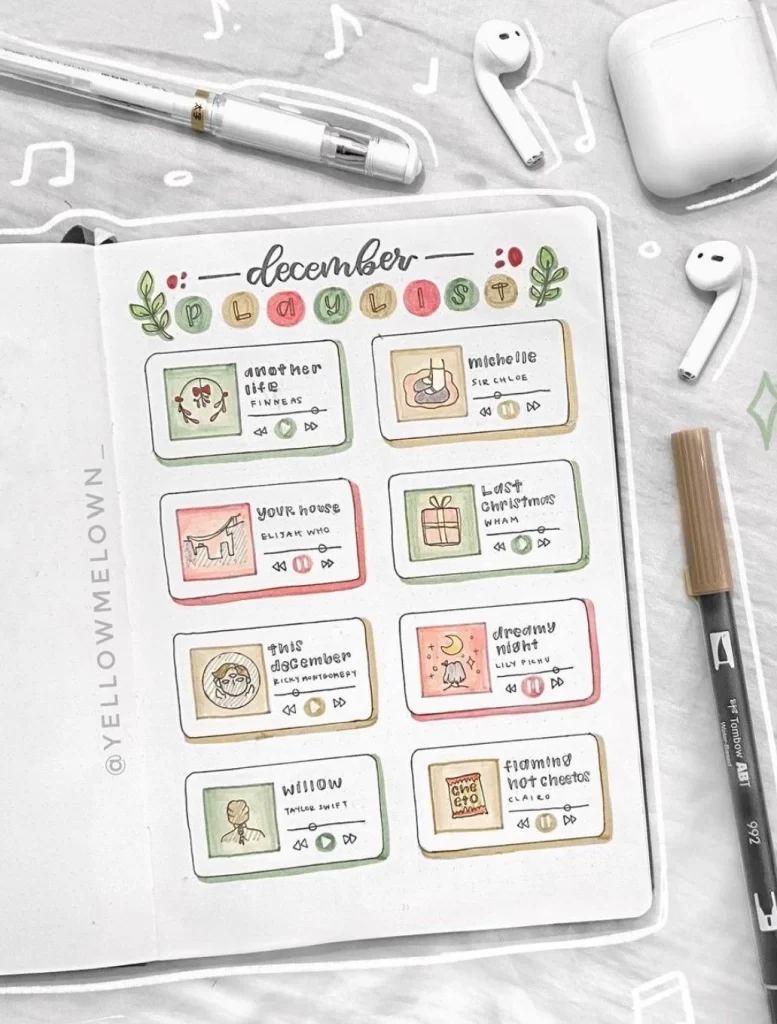 december
PLAYLIST
another
life
FINNEAS
michelle
SIR CHLOE
your house
ELIJAH WHO
Last
Christmas
WHAM
this
december
RICKY MONTGOMERY
dreamy
night
LILY PICHU
willow
TAYLOR SWIFT
flaming
hot cheetos
CLAIRO
che
eto
@YELLOWMELOWN_
Tombow ABT
992